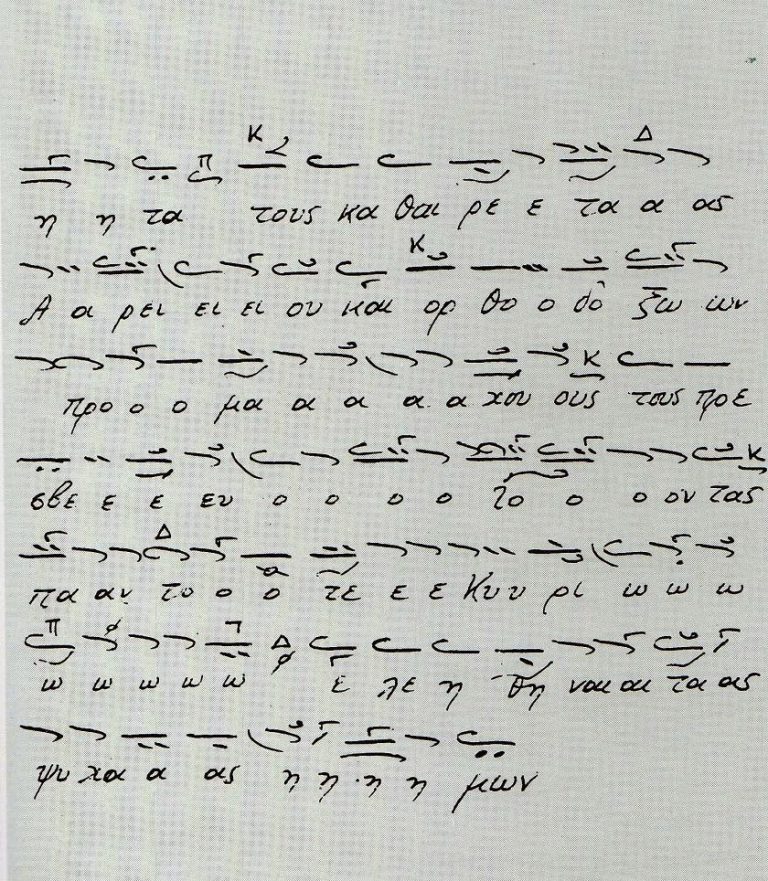 η η τα τους κα θαι ρε ε τα α ας
Α α ρει ει ει ου και ορ θο ο δο ξω ων
προ ο ο μα α α α α χου ους τους πρε
σβε ε ε ευ ο ο ο ο το ο ο ον τας
πα αν το ο ο τε ε ε Κυ υ ρι ω ω ω
ω ω ω ω ω ε λε η θη ναι αι τα ας
ψυ χα α ας η η η η μων